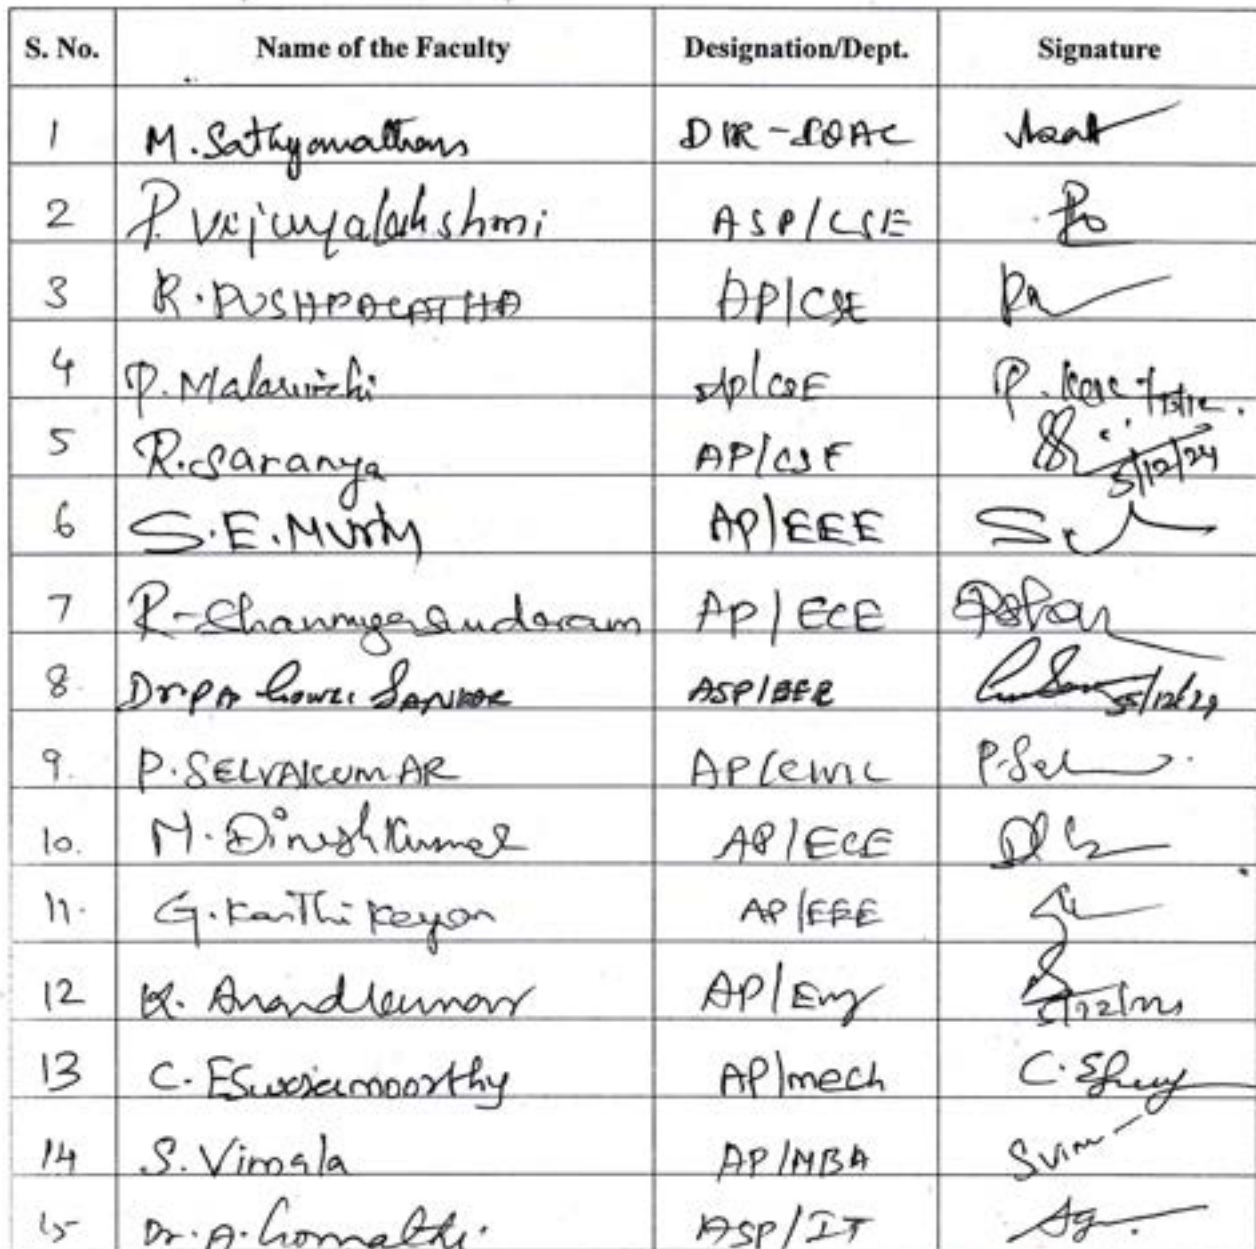 S. No. Name of the Faculty Designation/Dept. Signature
1 M. Sathyamathans DIR-IQAC
2 P. Vijayalakshmi ASP/CSE
3 R. PUSHPALATHA AP/CSE
4 P. Malarvizhi AP/CSE P.
5 R. Saranya AP/CSE 5/12/24
6 S.E. Murthy AP/EEE
7 R-Shanmugasundaram AP/ECE
8. Dr PA Gowri SANKAR ASP/EEE 5/12/24
9. P. SELVAKUMAR AP/CIVIL P. Sel
10. M. Dineshkumar AP/ECE
11. G. Karthikeyan AP/EEE
12 K. Anandkumar AP/Eng 5/12/24
13 C. Eswaramoorthy AP/mech C.
14 S. Vimala AP/MBA S vim
15 Dr. A. Gomathi. ASP/IT